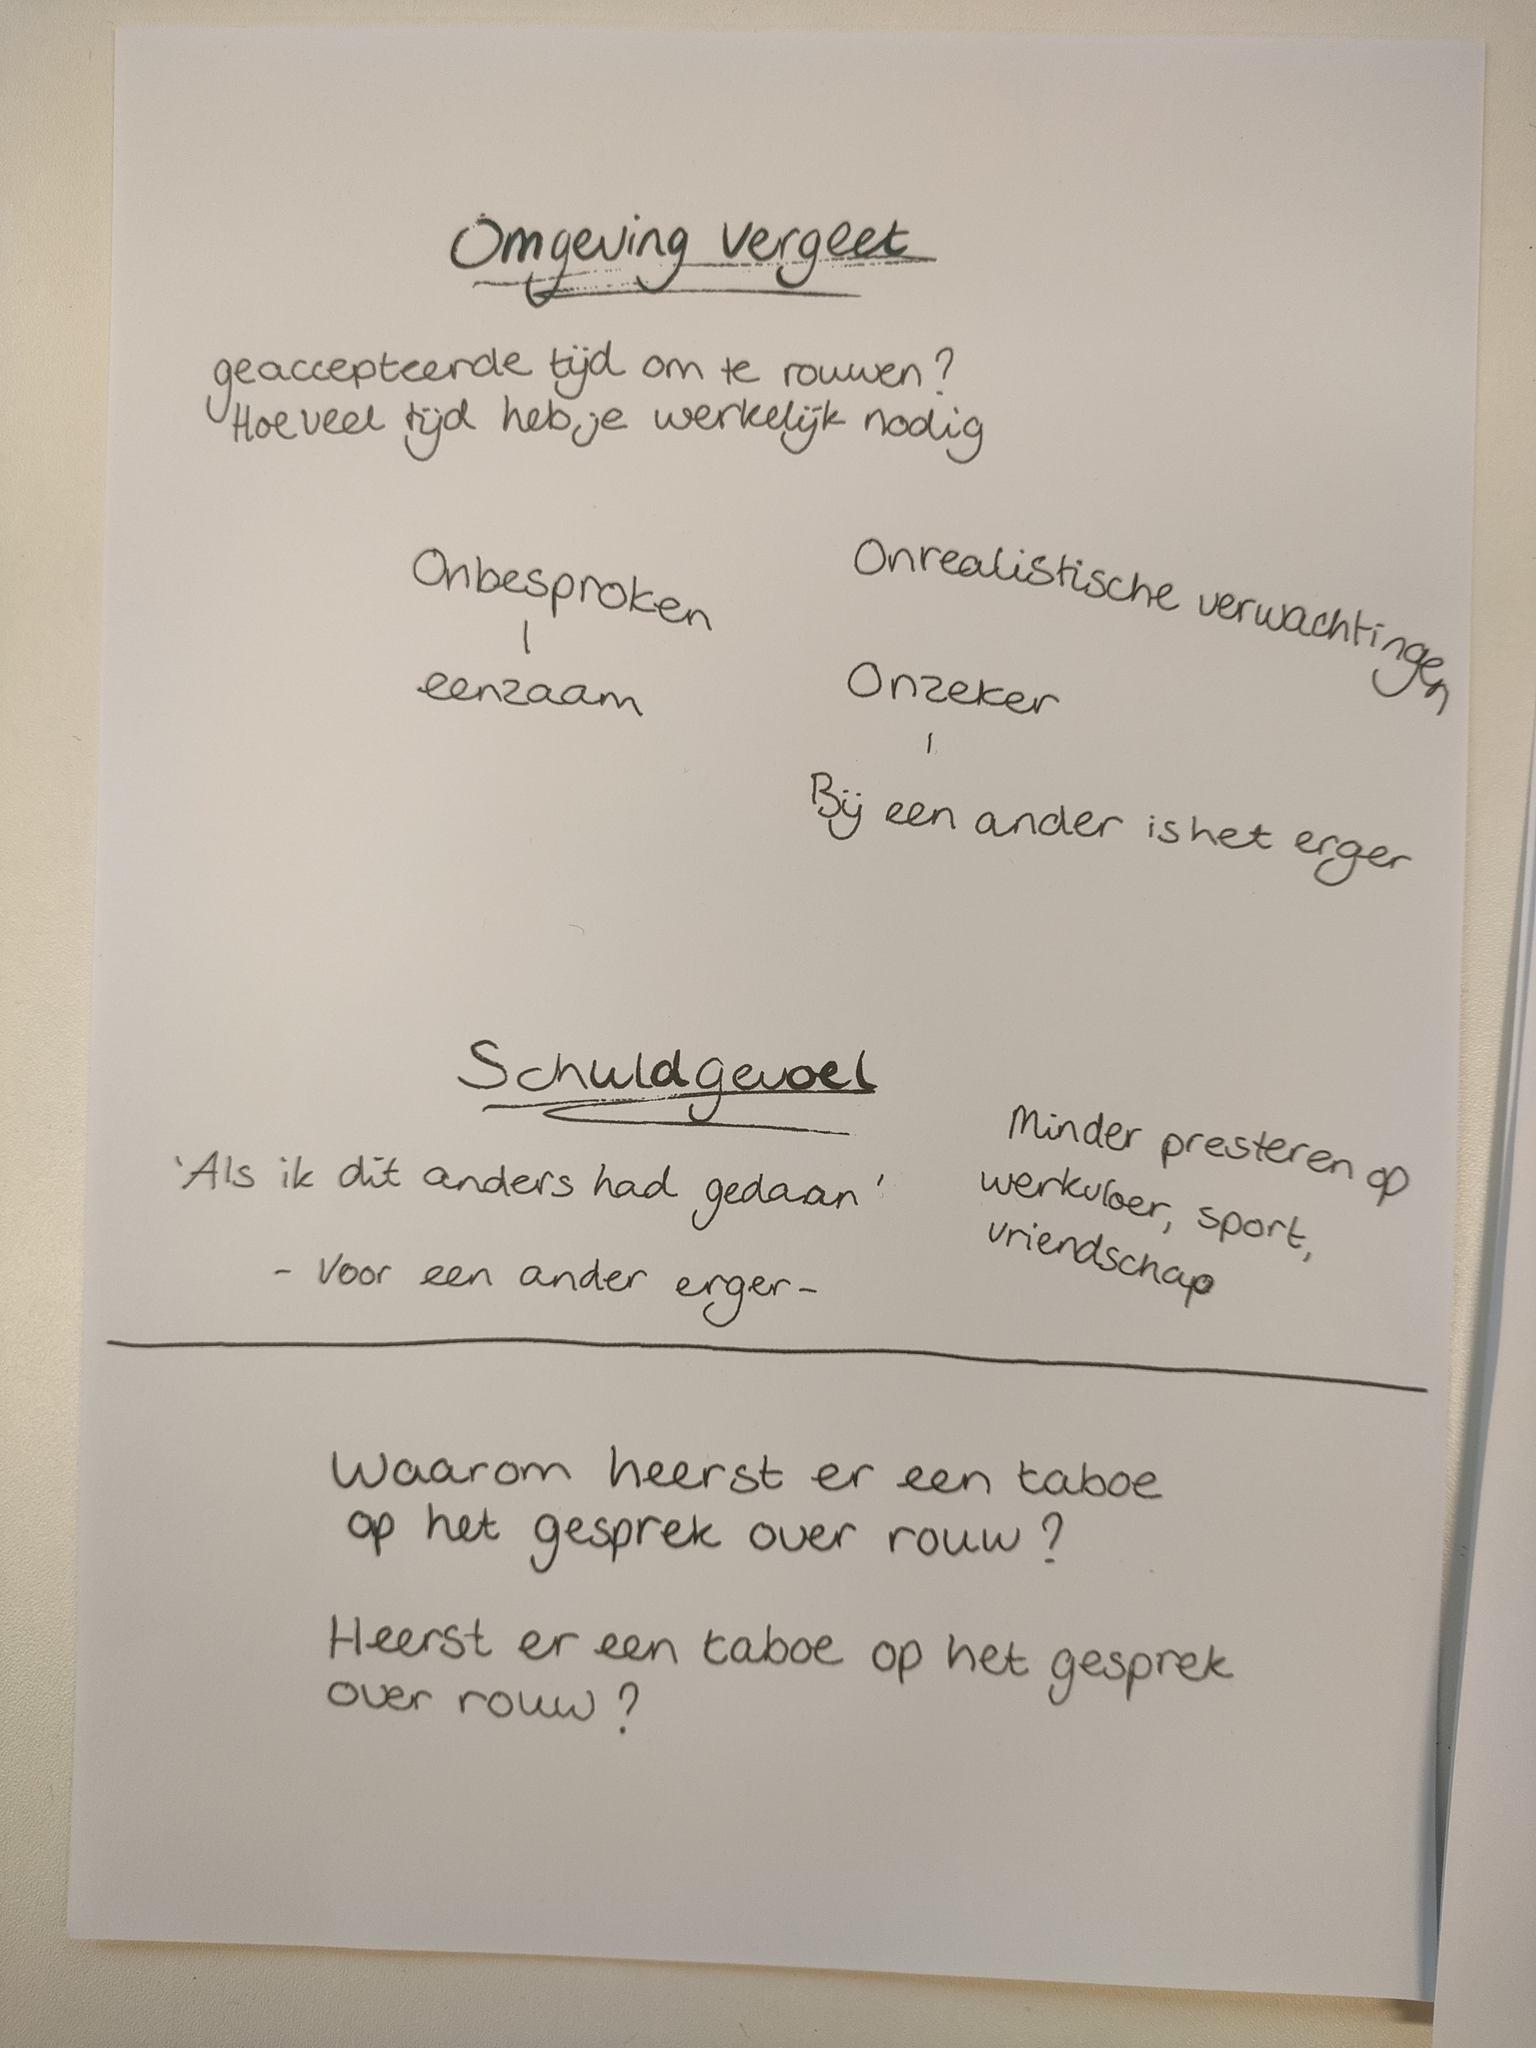 Omgeving vergeet
geaccepteerde tijd om te rouwen?
Hoeveel tijd heb je werkelijk nodig
Onbesproken
|
eenzaam
Onrealistische verwachtingen
Onzeker
|
Bij een ander is het erger
Schuldgevoel
'Als ik dit anders had gedaan'
- Voor een ander erger -
Minder presteren op
werkvloer, sport,
vriendschap
Waarom heerst er een taboe
op het gesprek over rouw?
Heerst er een taboe op het gesprek
over rouw?